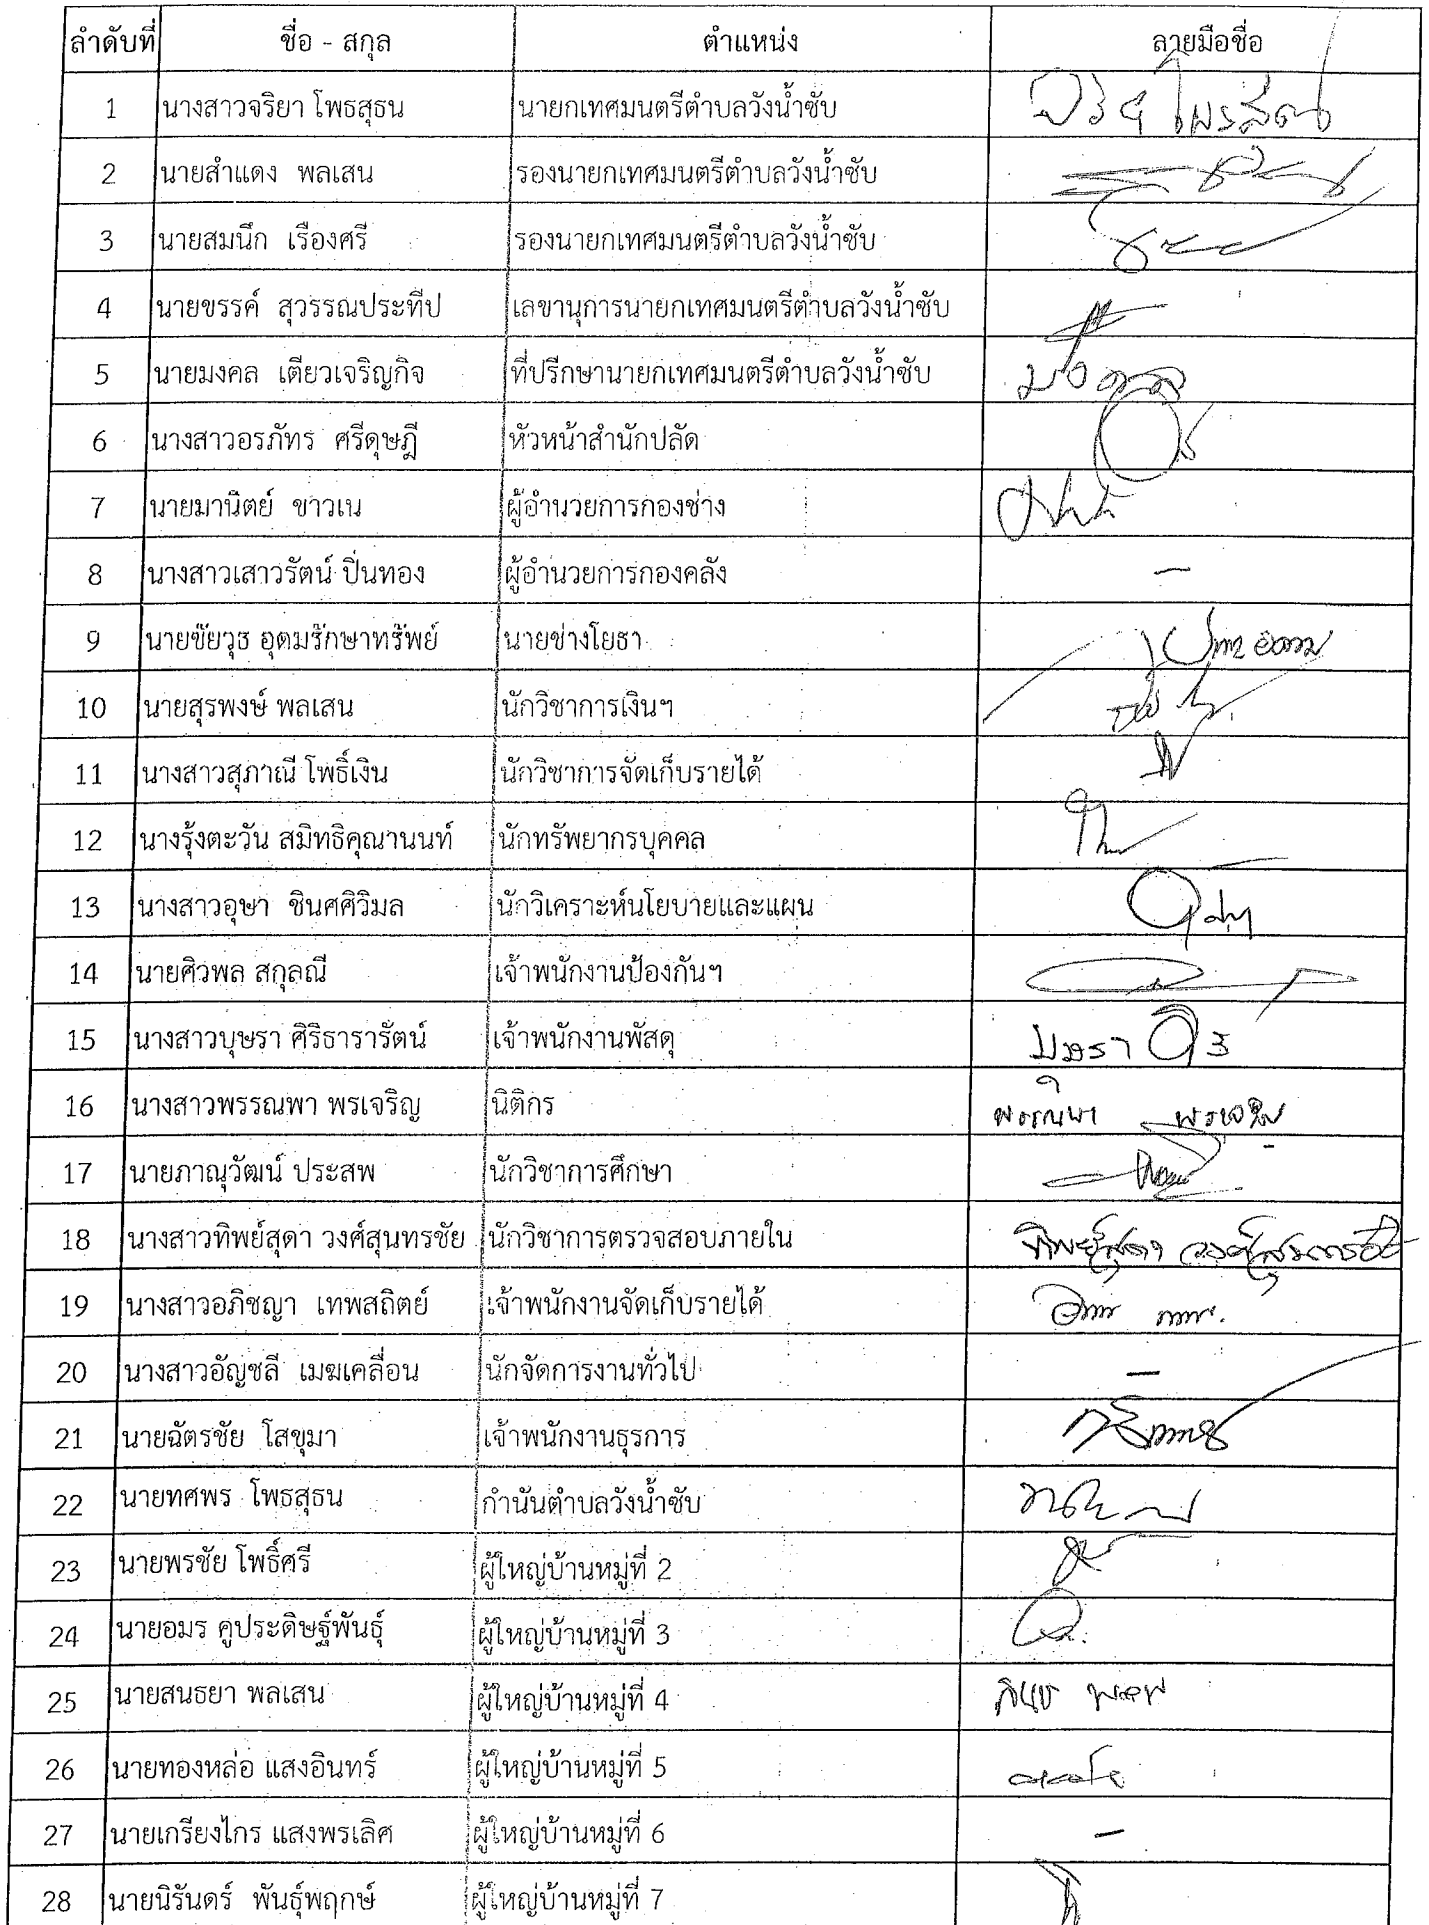 ลำดับที่ ชื่อ - สกุล ตำแหน่ง ลายมือชื่อ
1 นางสาวจริยา โพธสุธน นายกเทศมนตรีตำบลวังน้ำซับ
2 นายสำแดง พลเสน รองนายกเทศมนตรีตำบลวังน้ำซับ
3 นายสมนึก เรืองศรี รองนายกเทศมนตรีตำบลวังน้ำซับ
4 นายขรรค์ สุวรรณประทีป เลขานุการนายกเทศมนตรีตำบลวังน้ำซับ
5 นายมงคล เตียวเจริญกิจ ที่ปรึกษานายกเทศมนตรีตำบลวังน้ำซับ มงคล
6 นางสาวอรภัทร ศรีดุษฎี หัวหน้าสำนักปลัด
7 นายมานิตย์ ขาวเน ผู้อำนวยการกองช่าง
8 นางสาวเสาวรัตน์ ปิ่นทอง ผู้อำนวยการกองคลัง -
9 นายชัยวุธ อุดมรักษาทรัพย์ นายช่างโยธา
10 นายสุรพงษ์ พลเสน นักวิชาการเงินฯ
11 นางสาวสุภาณี โพธิ์เงิน นักวิชาการจัดเก็บรายได้
12 นางรุ้งตะวัน สมิทธิคุณานนท์ นักทรัพยากรบุคคล
13 นางสาวอุษา ชินศศิวิมล นักวิเคราะห์นโยบายและแผน
14 นายศิวพล สกุลณี เจ้าพนักงานป้องกันฯ
15 นางสาวบุษรา ศิริธารารัตน์ เจ้าพนักงานพัสดุ
16 นางสาวพรรณพา พรเจริญ นิติกร
17 นายภาณุวัฒน์ ประสพ นักวิชาการศึกษา
18 นางสาวทิพย์สุดา วงศ์สุนทรชัย นักวิชาการตรวจสอบภายใน ทิพย์สุดา วงศ์สุนทรชัย
19 นางสาวอภิชญา เทพสถิตย์ เจ้าพนักงานจัดเก็บรายได้
20 นางสาวอัญชลี เมฆเคลื่อน นักจัดการงานทั่วไป -
21 นายฉัตรชัย โสขุมา เจ้าพนักงานธุรการ
22 นายทศพร โพธสุธน กำนันตำบลวังน้ำซับ
23 นายพรชัย โพธิ์ศรี ผู้ใหญ่บ้านหมู่ที่ 2
24 นายอมร คูประดิษฐ์พันธุ์ ผู้ใหญ่บ้านหมู่ที่ 3
25 นายสนธยา พลเสน ผู้ใหญ่บ้านหมู่ที่ 4
26 นายทองหล่อ แสงอินทร์ ผู้ใหญ่บ้านหมู่ที่ 5
27 นายเกรียงไกร แสงพรเลิศ ผู้ใหญ่บ้านหมู่ที่ 6 -
28 นายนิรันดร์ พันธุ์พฤกษ์ ผู้ใหญ่บ้านหมู่ที่ 7